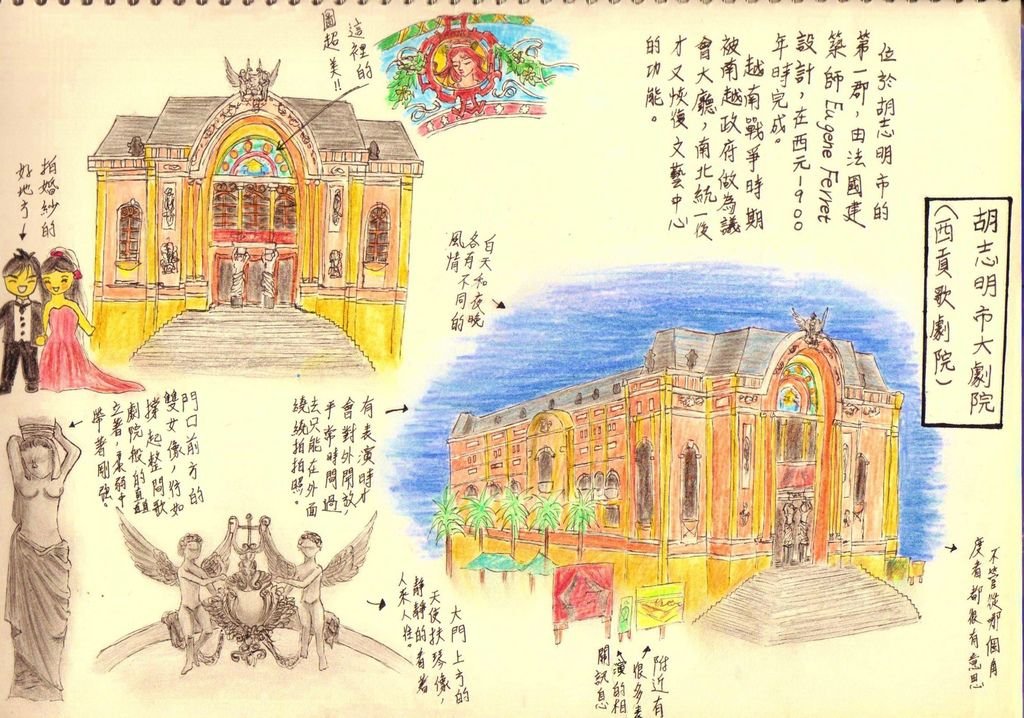 胡志明市大劇院
(西貢歌劇院)
位於胡志明市的
第一郡，由法國建
築師Eugene Ferret
設計，在西元一900
年時完成。
越南戰爭時期
被南越政府做為議
會大廳，南北統一後
才又恢復文藝中心
的功能。
這裡的
圖超美!!
拍婚紗的
好地方
白天和夜晚
各有不同的
風情
有表演時才
會對外開放，
平常時間過
去只能在外面
繞繞拍拍照。
門口前方的
雙女像，彷如
撐起整間歌
劇院般的直直
立著，柔弱中
帶著剛強。
大門上方的
天使扶琴像，
靜靜的看著
人來人往。
附近有
很多表
演的相
關訊息
不管從哪個角
度看都很有意思